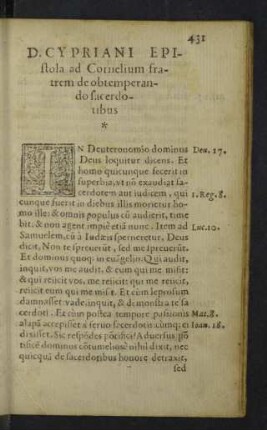 431
D. CYPRIANI EPI-
stola ad Cornelium fra-
trem de obtemperan-
do sacerdo-
tibus
*
IN Deuteronomio dominus Deu. 17.
Deus loquitur dicens. Et
homo quicunque fecerit in
superbia, vt nõ exaudiat sa-
cerdotem aut iudicem, qui 1. Reg. 8.
cunque fuerit in diebus illis morietur ho-
mo ille: & omnis populus cũ audierit, time
bit. & non agent impiè etiã nunc. Item ad Luc. 10.
Samuelem, cũ à Iudæis sperneretur, Deus
dicit, Non te spreuerũt, sed me spreuerũt.
Et dominus quoq; in euãgelio. Qui audit,
inquit, vos me audit, & eum qui me misit:
& qui reiicit vos, me reiicit: qui me reiicit,
reiicit eum qui me misit. Et cùm leprosum
damnasset vade, inquit, & te sa Mat. 8.
cerdoti. Et cùm postea tempore passionis
alapã accepisset à seruo sacerdotis Ioan. 18.
dixisset, Sic respõdes põtifici? Aduersus põ
tificẽ dominus cõtumeliosè nihil dixit, nec
quicquã de sacerdotibus honore detraxit,
sed